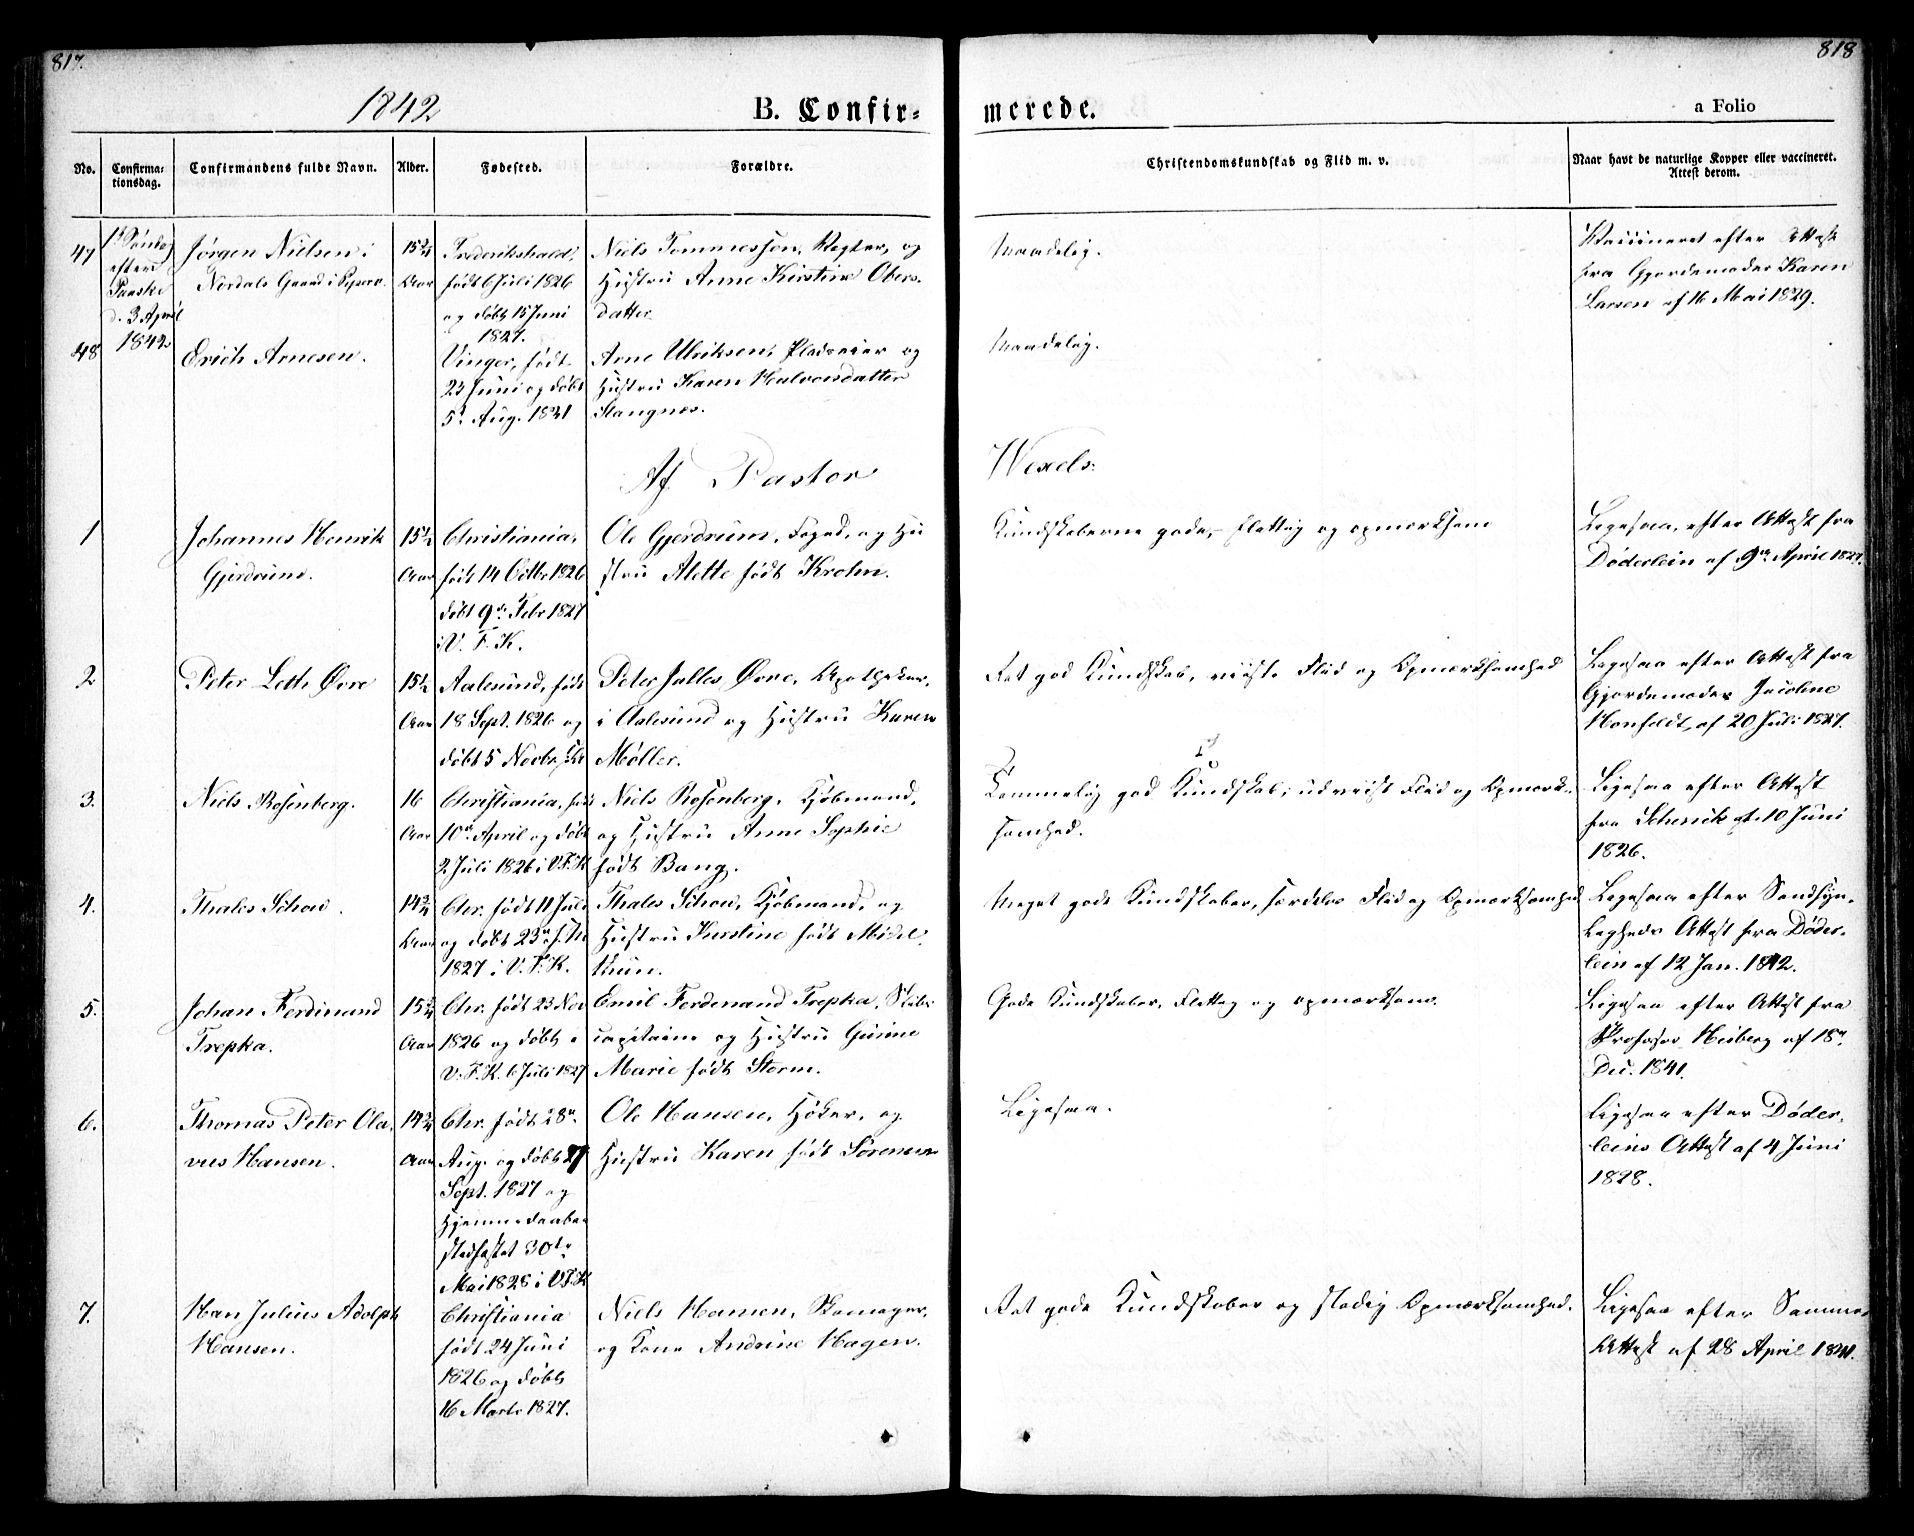 817.
818
1842
B. Confir-
merede.
a Folio
No.
Confirma-
tionsdag.
Confirmandens fulde Navn.
Alder.
Fødested.
Forældre.
Christendomskundskab og Flid m. v.
Naar havt de naturlige Kopper eller vaccineret.
Attest derom.
47
1ste Søndag
efter
Paaske
d. 3 April
1842
Jørgen Nielsen i
Nordals Gaard i Pipervi.
15¾
Aar
Frederikshald,
født 6 Juli 1826
og døbt 15 Juni
1827.
Niels Tommessen, Vægter, og
Hustru Anne Kirstine Obers-
datter
Maadelig.
Vaccineret efter Attest
fra Gjordemoder Karen
Larsen af 16 Mai 1829.
48
Erich Arnesen.
Vinger, født
23 Juni og døbt
5t Aug. 1821
Arne Ulriksen, Pladseier og
Hustru Karen Halvorsdatter
Stangnes.
Maadelig.
Af Pastor
Wexels:
1
Johannes Henrik
Gjerdrum.
15½
Aar
Christiania,
født 14 Octbr 1826
døbt 9de Febr 1827
i V. F. K.
Ole Gjerdrum, Foged, og Hu
stru Alette født Krohn.
Kundskaberne gode, flittig og opmærksom
Ligesaa, efter Attest fra
Döderlein af 9de April 1827.
2
Peter Leth Øvre
15½
Aar
Aalesund, født
18 Sept. 1826 og
døbt 5 Novbr.
Peter Jalles Øvre, Apotheker,
i Aalesund og Hustru Karen
Møller.
Ret god Kundskab, viist Flid og Opmærksomhed
Ligesaa efter Attest fra
Gjordemoder Jacobine
Honfeldt, af 20 Juli 1827.
3.
Niels Rosenberg.
16
Aar
Christiania, født
10de April og døbt
2 Juli 1826 i V.F.K
Niels Rosenberg, Kjøbmand,
og Hustru Anne Sophie
født Bang.
Temmelig god Kundskab; udviist Flid og Opmærk-
somhed.
Ligesaa efter Attest
fra Schenck af 10 Juni
1826.
4.
Thales Schow.
14¾
Aar
Chr. født 11 Juli
og døbt 23de
1827 i V. F. K.
Thales Schow, Kjøbmand, og
Hustru Kirstine født Midel-
thun.
Meget gode Kundskaber, særdeles Flid og Opmærksomhed
Ligesaa efter Sandsyn-
ligheds Attest fra Döder-
lein af 12 Jan. 1842.
5.
Johan Ferdinand
Trepka.
15¾
Aar
Chr. født 23 Nov
1826 og døbt i
V. F. K. 6 Juli 1827
Emil Ferdenand Trepka, Stabs-
capitaine og Hustru Gunne
Marie født Storm.
Gode Kundskaber, flittig og opmærksom.
Ligesaa efter Attest fra
Professor Heiberg af 18de
Dec. 1841.
6.
Thomas Peter Ola-
vus Hansen.
14¾
Aar
Chr. født 28de
Aug. og døbt 27
Sept. 1827 og
Hjemmedaaben
stadfæstet 30te
Mai 1828 i V.F.K
Ole Hansen, Høker, og
Hustru Karen født Sørensen
Ligesaa.
Ligesaa efter Döder-
leins Attest af 4 Juni
1828.
7.
Han Julius Adolph
Hansen.
Christiania
født 24 Juni
1826 og døbt
16 Marts 1827.
Niels Hansen, Skomager,
og Kone Andrine Hagen.
Ret gode Kundskaber og stadig Opmærksomhed.
Ligesaa efter Samme
Attest af 28 April 1841.